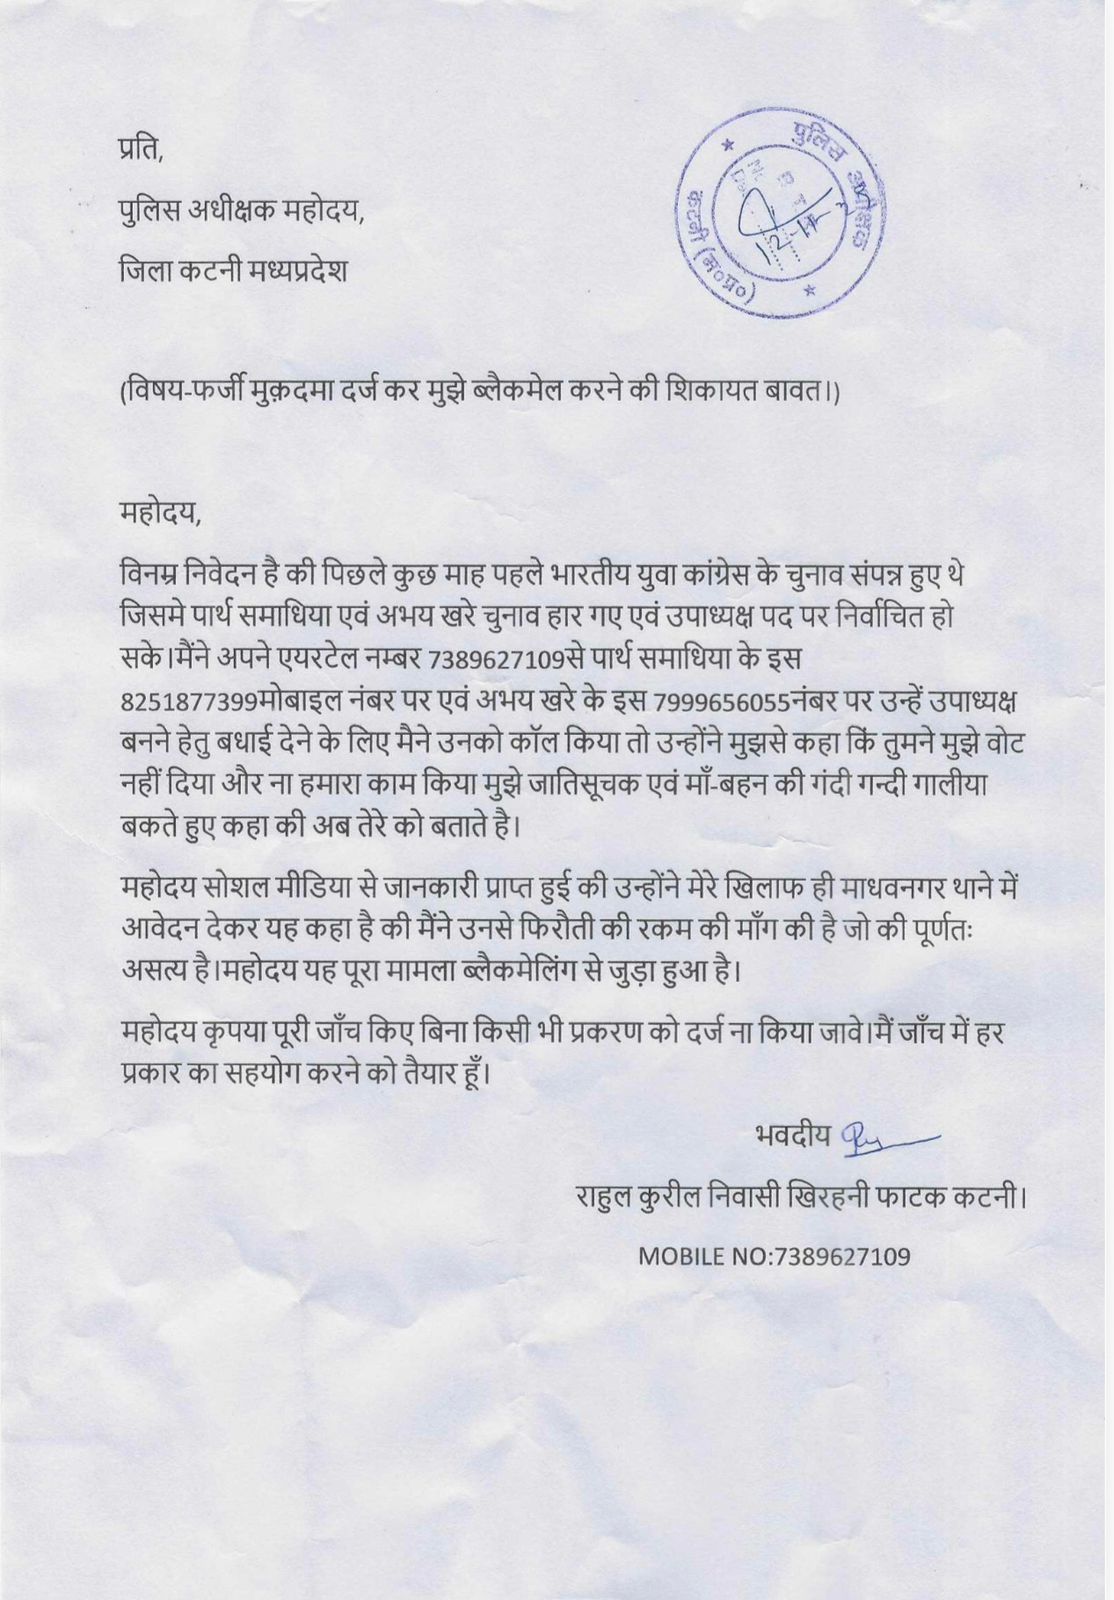 प्रति,
पुलिस अधीक्षक महोदय,
जिला कटनी मध्यप्रदेश
पुलिस अधीक्षक
कटनी (म०प्र०)
(विषय-फर्जी मुक़दमा दर्ज कर मुझे ब्लैकमेल करने की शिकायत बावत।)
महोदय,
विनम्र निवेदन है की पिछले कुछ माह पहले भारतीय युवा कांग्रेस के चुनाव संपन्न हुए थे
जिसमे पार्थ समाधिया एवं अभय खरे चुनाव हार गए एवं उपाध्यक्ष पद पर निर्वाचित हो
सके।मैंने अपने एयरटेल नम्बर 7389627109से पार्थ समाधिया के इस
8251877399मोबाइल नंबर पर एवं अभय खरे के इस 7999656055नंबर पर उन्हें उपाध्यक्ष
बनने हेतु बधाई देने के लिए मैने उनको कॉल किया तो उन्होंने मुझसे कहा किं तुमने मुझे वोट
नहीं दिया और ना हमारा काम किया मुझे जातिसूचक एवं माँ-बहन की गंदी गन्दी गालीया
बकते हुए कहा की अब तेरे को बताते है।
महोदय सोशल मीडिया से जानकारी प्राप्त हुई की उन्होंने मेरे खिलाफ ही माधवनगर थाने में
आवेदन देकर यह कहा है की मैंने उनसे फिरौती की रकम की माँग की है जो की पूर्णतः
असत्य है।महोदय यह पूरा मामला ब्लैकमेलिंग से जुड़ा हुआ है।
महोदय कृपया पूरी जाँच किए बिना किसी भी प्रकरण को दर्ज ना किया जावे।मैं जाँच में हर
प्रकार का सहयोग करने को तैयार हूँ।
भवदीय
राहुल कुरील निवासी खिरहनी फाटक कटनी।
MOBILE NO:7389627109